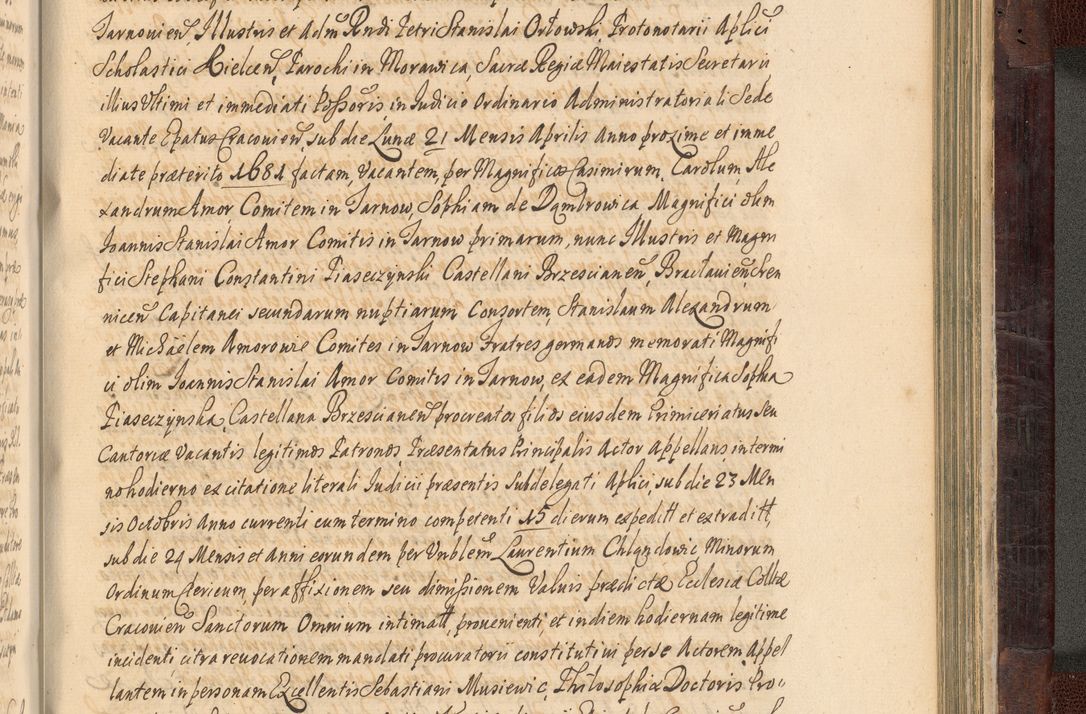 Tarnovien̄, Illustris et Adm̄ Rndi Petri Stanislai Orłowski, Protonotarii Aplici
Scholastici Kielcen̄, Parochi in Morawica, Sacræ Regiæ Maiestatis Secretarii
illius Vltimi et immediati Possoris, in Iudicio Ordinario Administratoriali Sede
Vacante Epatus Cracovien̄, sub die Lunæ 21 Mensis Aprilis Anno proxime et imme
diate præterito 1681 factam, Vacantem, per Magnificos Casimirum, Carolum, Ale
xandrum Amor Comitem in Tarnow, Sophiam de Dąmbrowica Magnifici olim
Ioannis Stanislai Amor Comitis in Tarnow primarum, nunc Illustris et Magni
fici Stephani Constantini Piaseczynski Castellani Brzescianen̄, Bracłavien̄, Kren
nicen̄ Capitanei secundarum nuptiarum Consortem, Stanislaum Alexandrum
et Michäelem Amorowie Comites in Tarnow Fratres germanos memorati Magnifi
ci olim Ioannis Stanislai Amor Comitis in Tarnow, ex eadem Magnifica Sophia
Piaseczynska, Castellana Brzescianen̄ procreatos filios eiusdem Primiceriatus seu
Cantoriæ Vacantis legitimos Patronos Præsentatus Principalis Actor Appellans in termi
no hodierno ex citatione literali Iudicii præsentis Subdelegati Aplici, sub die 23 Men
sis Octobris Anno currenti cum termino competenti 15 dierum expeditt et extraditt,
sub die 24 Mensis et Anni eorundem per Vnblem Laurentium Chlyndowic Minorum
Ordinum Clericum, per affixionem seu dimissionem Valvis prædictæ Ecclesiæ Colltæ
Cracovien̄ Sanctorum Omnium intimatt, provenienti, et in diem hodiernam legitime
incidenti, citra revocationem mandati procuratorii constituti vi per se Actorem Appel
lantem, in personam Excellentis Sebastiani Musiewic, Philosophiæ Doctoris, Pro-